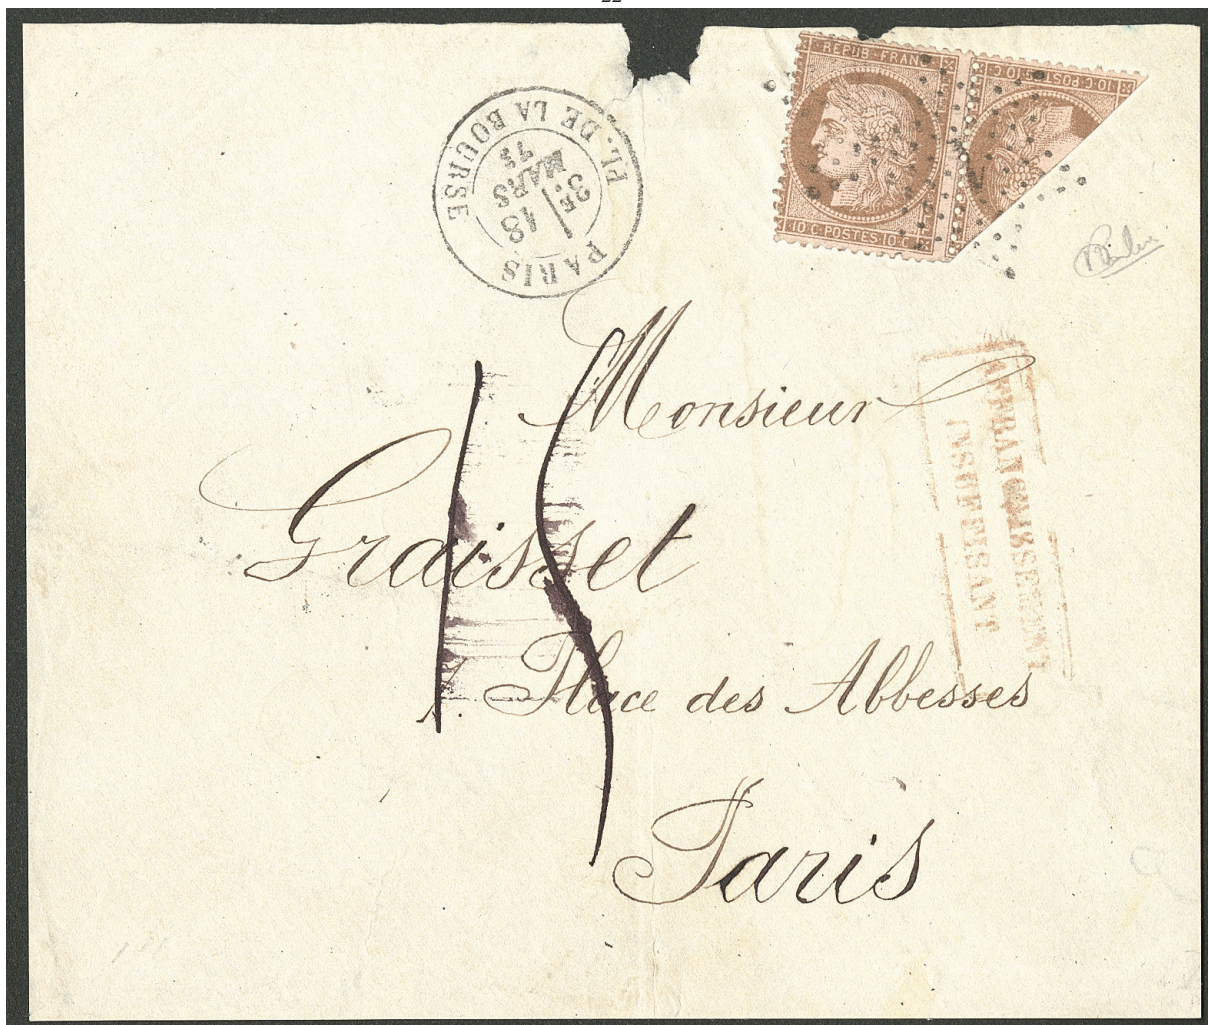 REPUB · FRANC
10 C. POSTES 10 C.
10 C. POSTES 10 C.
PARIS
PL. DE LA BOURSE
3E
18
MARS
75
AFFRANCHISSEMENT
INSUFFISANT
15
Monsieur
Graisset
Place des Abbesses
Paris